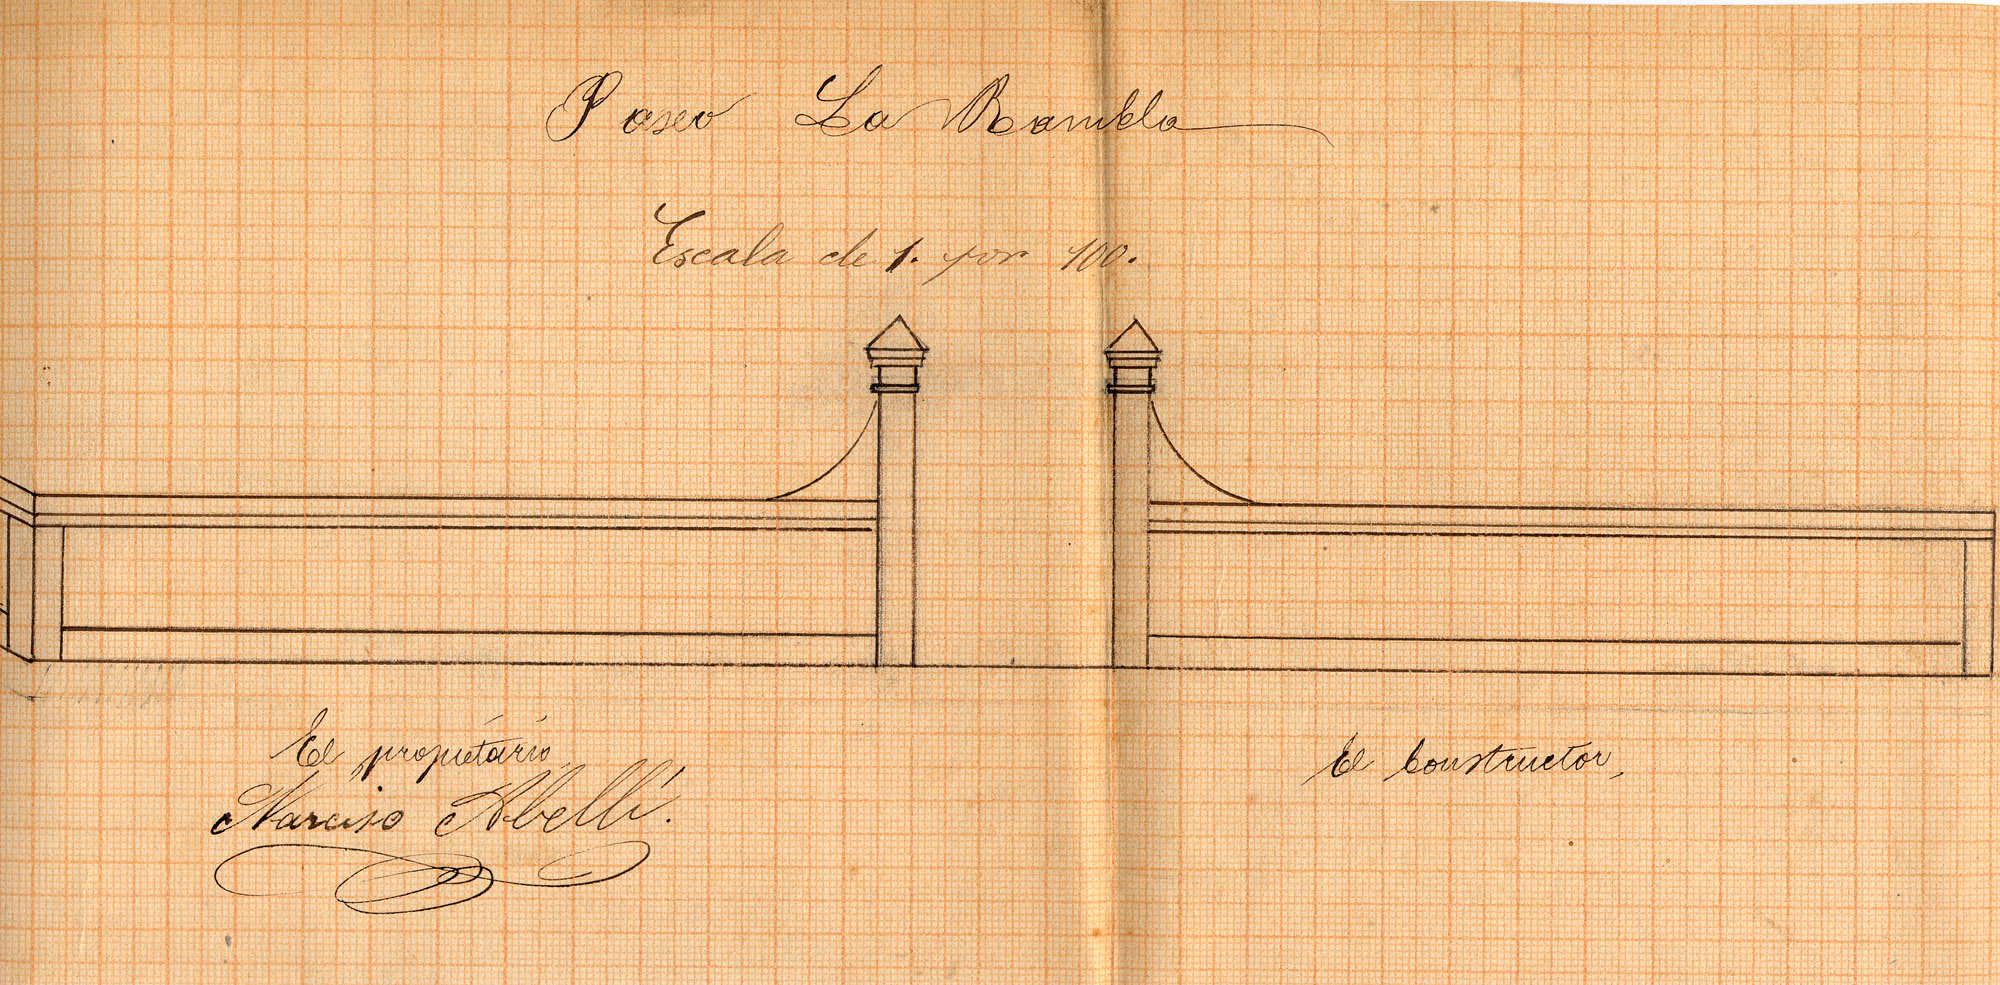 Paseo La Rambla
Escala de 1. por 100.
El propietário
Narciso Abellí.
El Constructor,